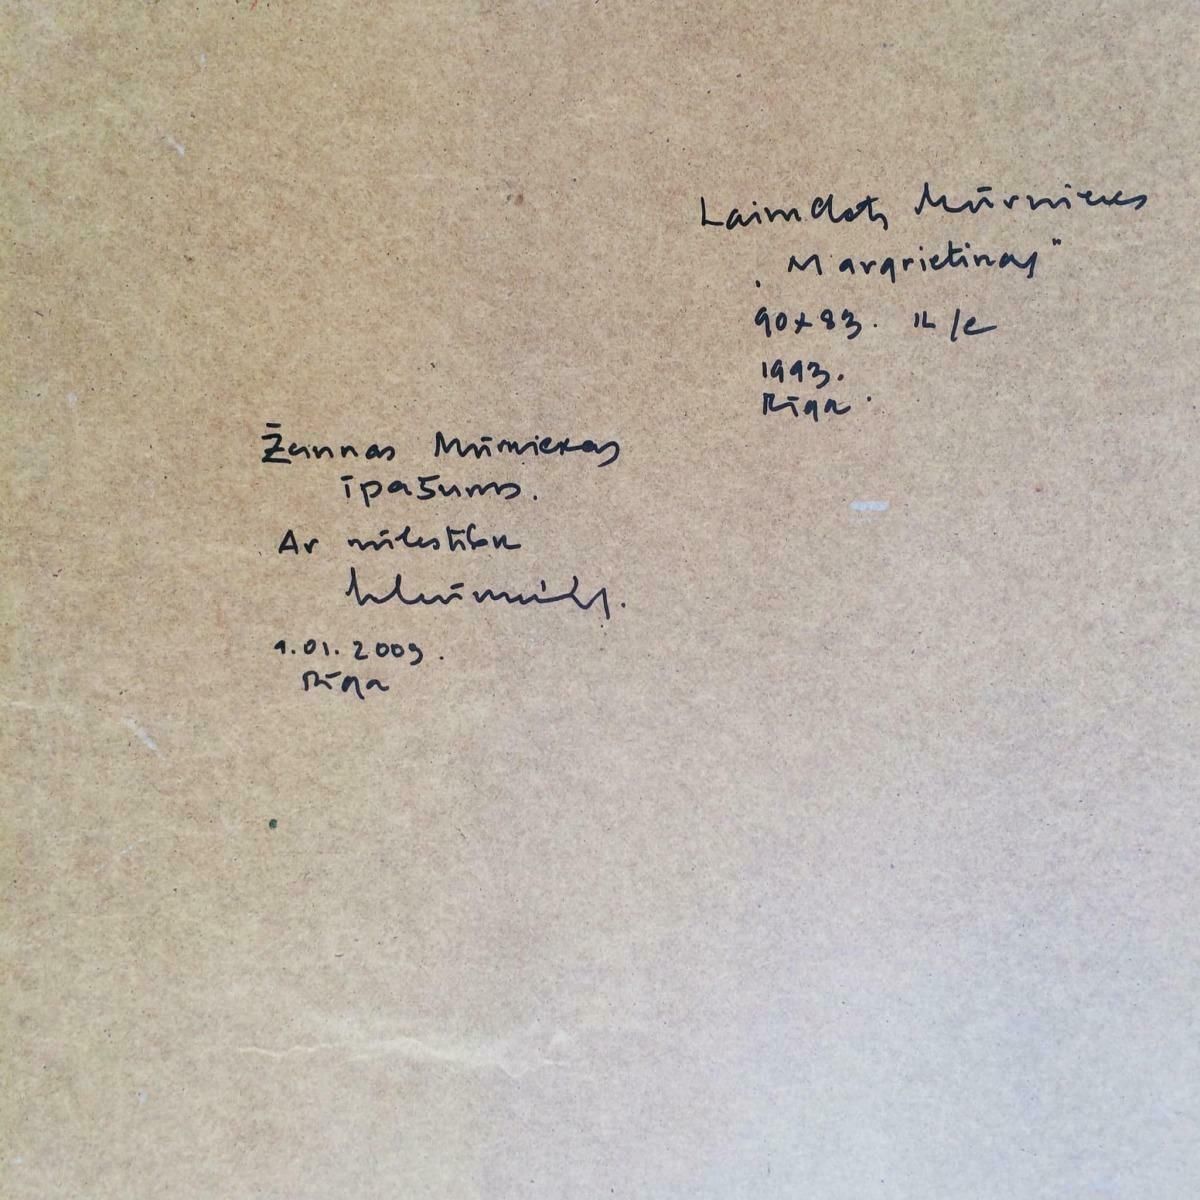 Laimdots Mūrnieks
„Margrietiņas"
90x83. k/e
1993.
Rīga.
Žannas Mūrniekas
īpašums.
Ar mīlestību
LMūrnieks.
1.01.2009.
Rīga